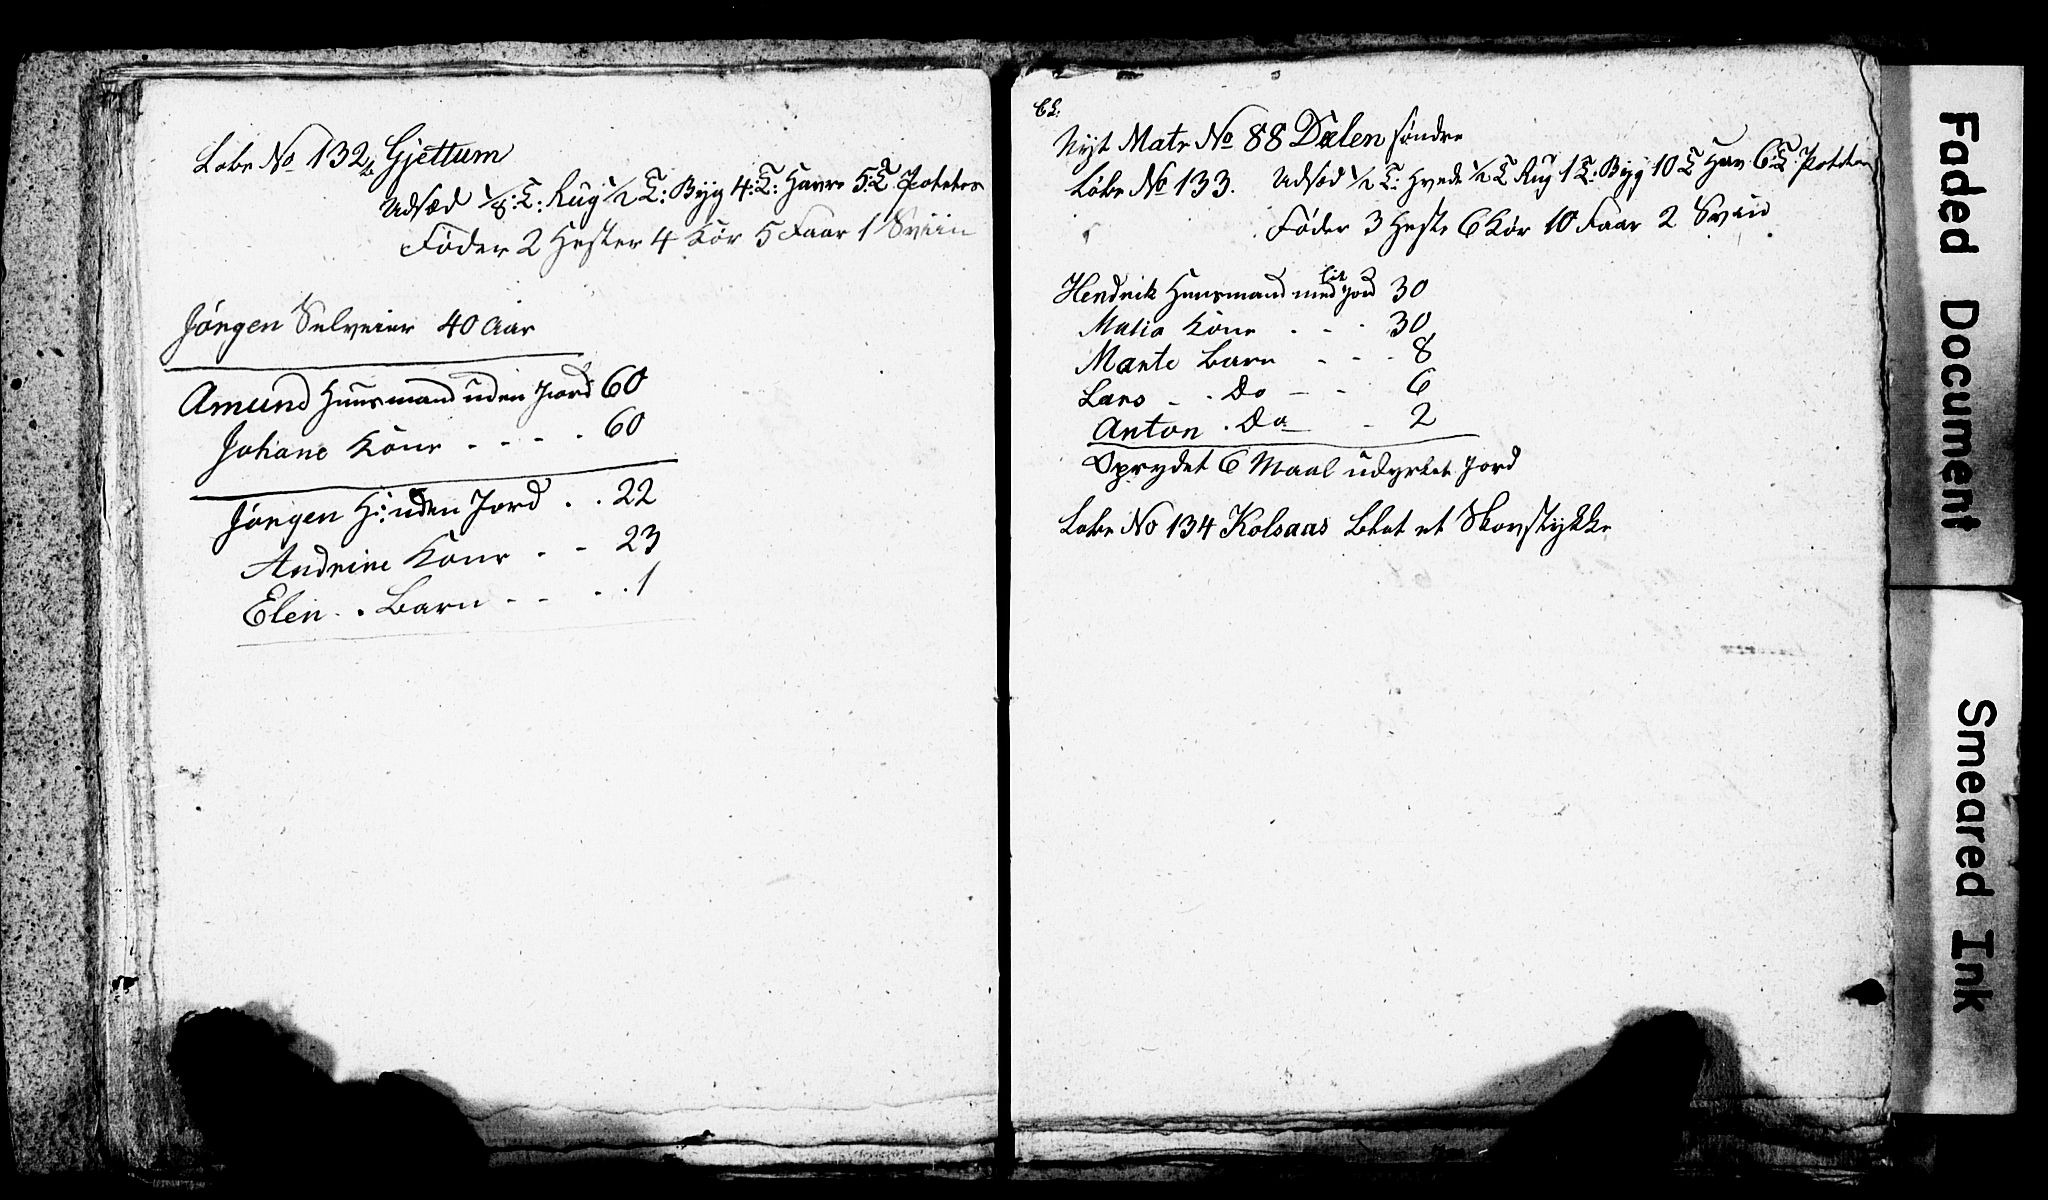 Løbe No 132 b Gjettum
Udsæd 1/8 T: Rug 1/2 T: Byg 4: T: Havre 5: T. Poteter
Føder 2 Hester 4 Kör 5 Faar 1 Sviin
Jörgen Selveier 40 Aar
Amund Huusmand uden Jord 60
Johane Kone - - - - 60
Jörgen H: uden Jord . . 22
Andrine Kone - - 23
Elen . . Barn - - - . 1
Nyt Matr No 88 Dælen søndre
Løbe No 133. Udsæd 1/2 T: Hvede 1/2 T Rug 1 T: Byg 10 T Hav 6 T. Poteter
Føder 3 Heste 6 Kør 10 Faar 2 Sviin
Hendrik Huusmand med lit Jord 30
Kone . - . 30
Mante Barn - - - 8
Lars - . Do - - 6
Anton . Do - 2
6 Maal udyrket Jord
Løbe No 134 Kolsaas Blot et Skovstykke
Faded Document
Smeared Ink